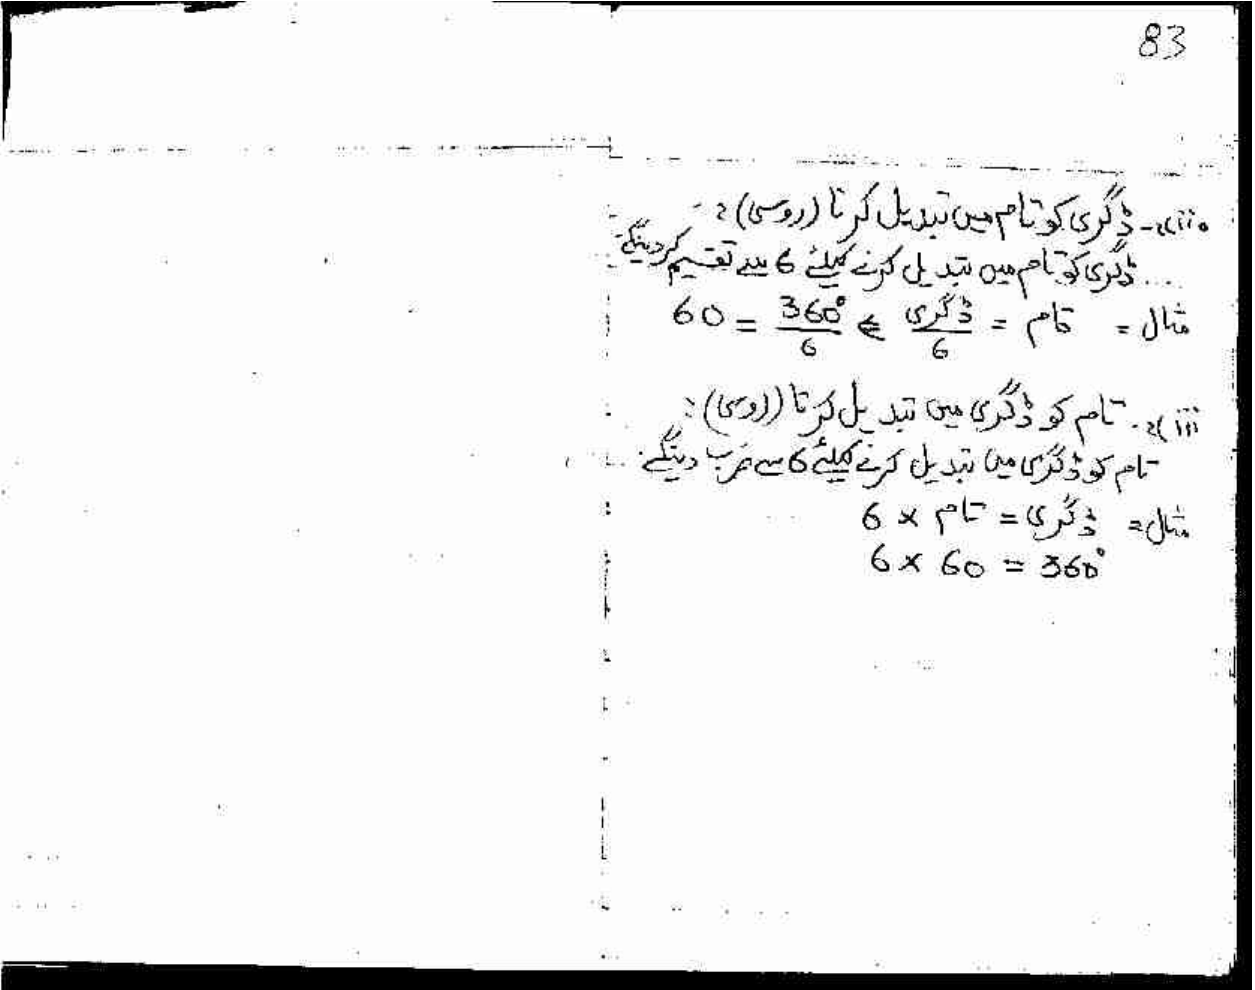 83
ii)۔ ڈگری کو تام میں تبدیل کرنا (روسی):
ڈگری کو تام میں تبدیل کرنے کیلئے 6 سے تقسیم کر دینگے
مثال = تام = ڈگری/6 ⇐ 360°/6 = 60
iii)۔ تام کو ڈگری میں تبدیل کرنا (روسی):
تام کو ڈگری میں تبدیل کرنے کیلئے 6 سے ضرب دینگے
مثال = ڈگری = تام × 6
6 × 60 = 360°